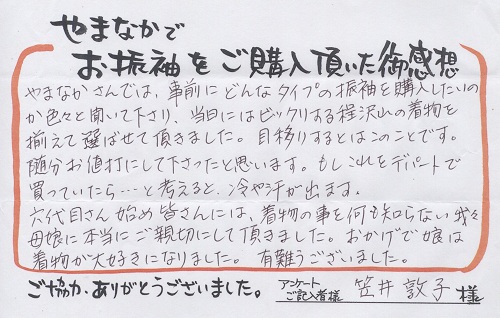 やまなかで
お振袖をご購入頂いた御感想
やまなかさんでは、事前にどんなタイプの振袖を購入したいの
か色々と聞いて下さり、当日にはビックリする程沢山の着物を
揃えて選ばせて頂きました。目移りするとはこのことです。
随分お値打にして下さったと思います。もしこれをデパートで
買っていたら…と考えると、冷や汗が出ます。
六代目さん始め皆さんには、着物の事を何も知らない我々
母娘に本当にご親切にして頂きました。おかげで娘は
着物が大好きになりました。有難うございました。
ご協力、ありがとうございました。
アンケート
ご記入者様 笠井敦子 様